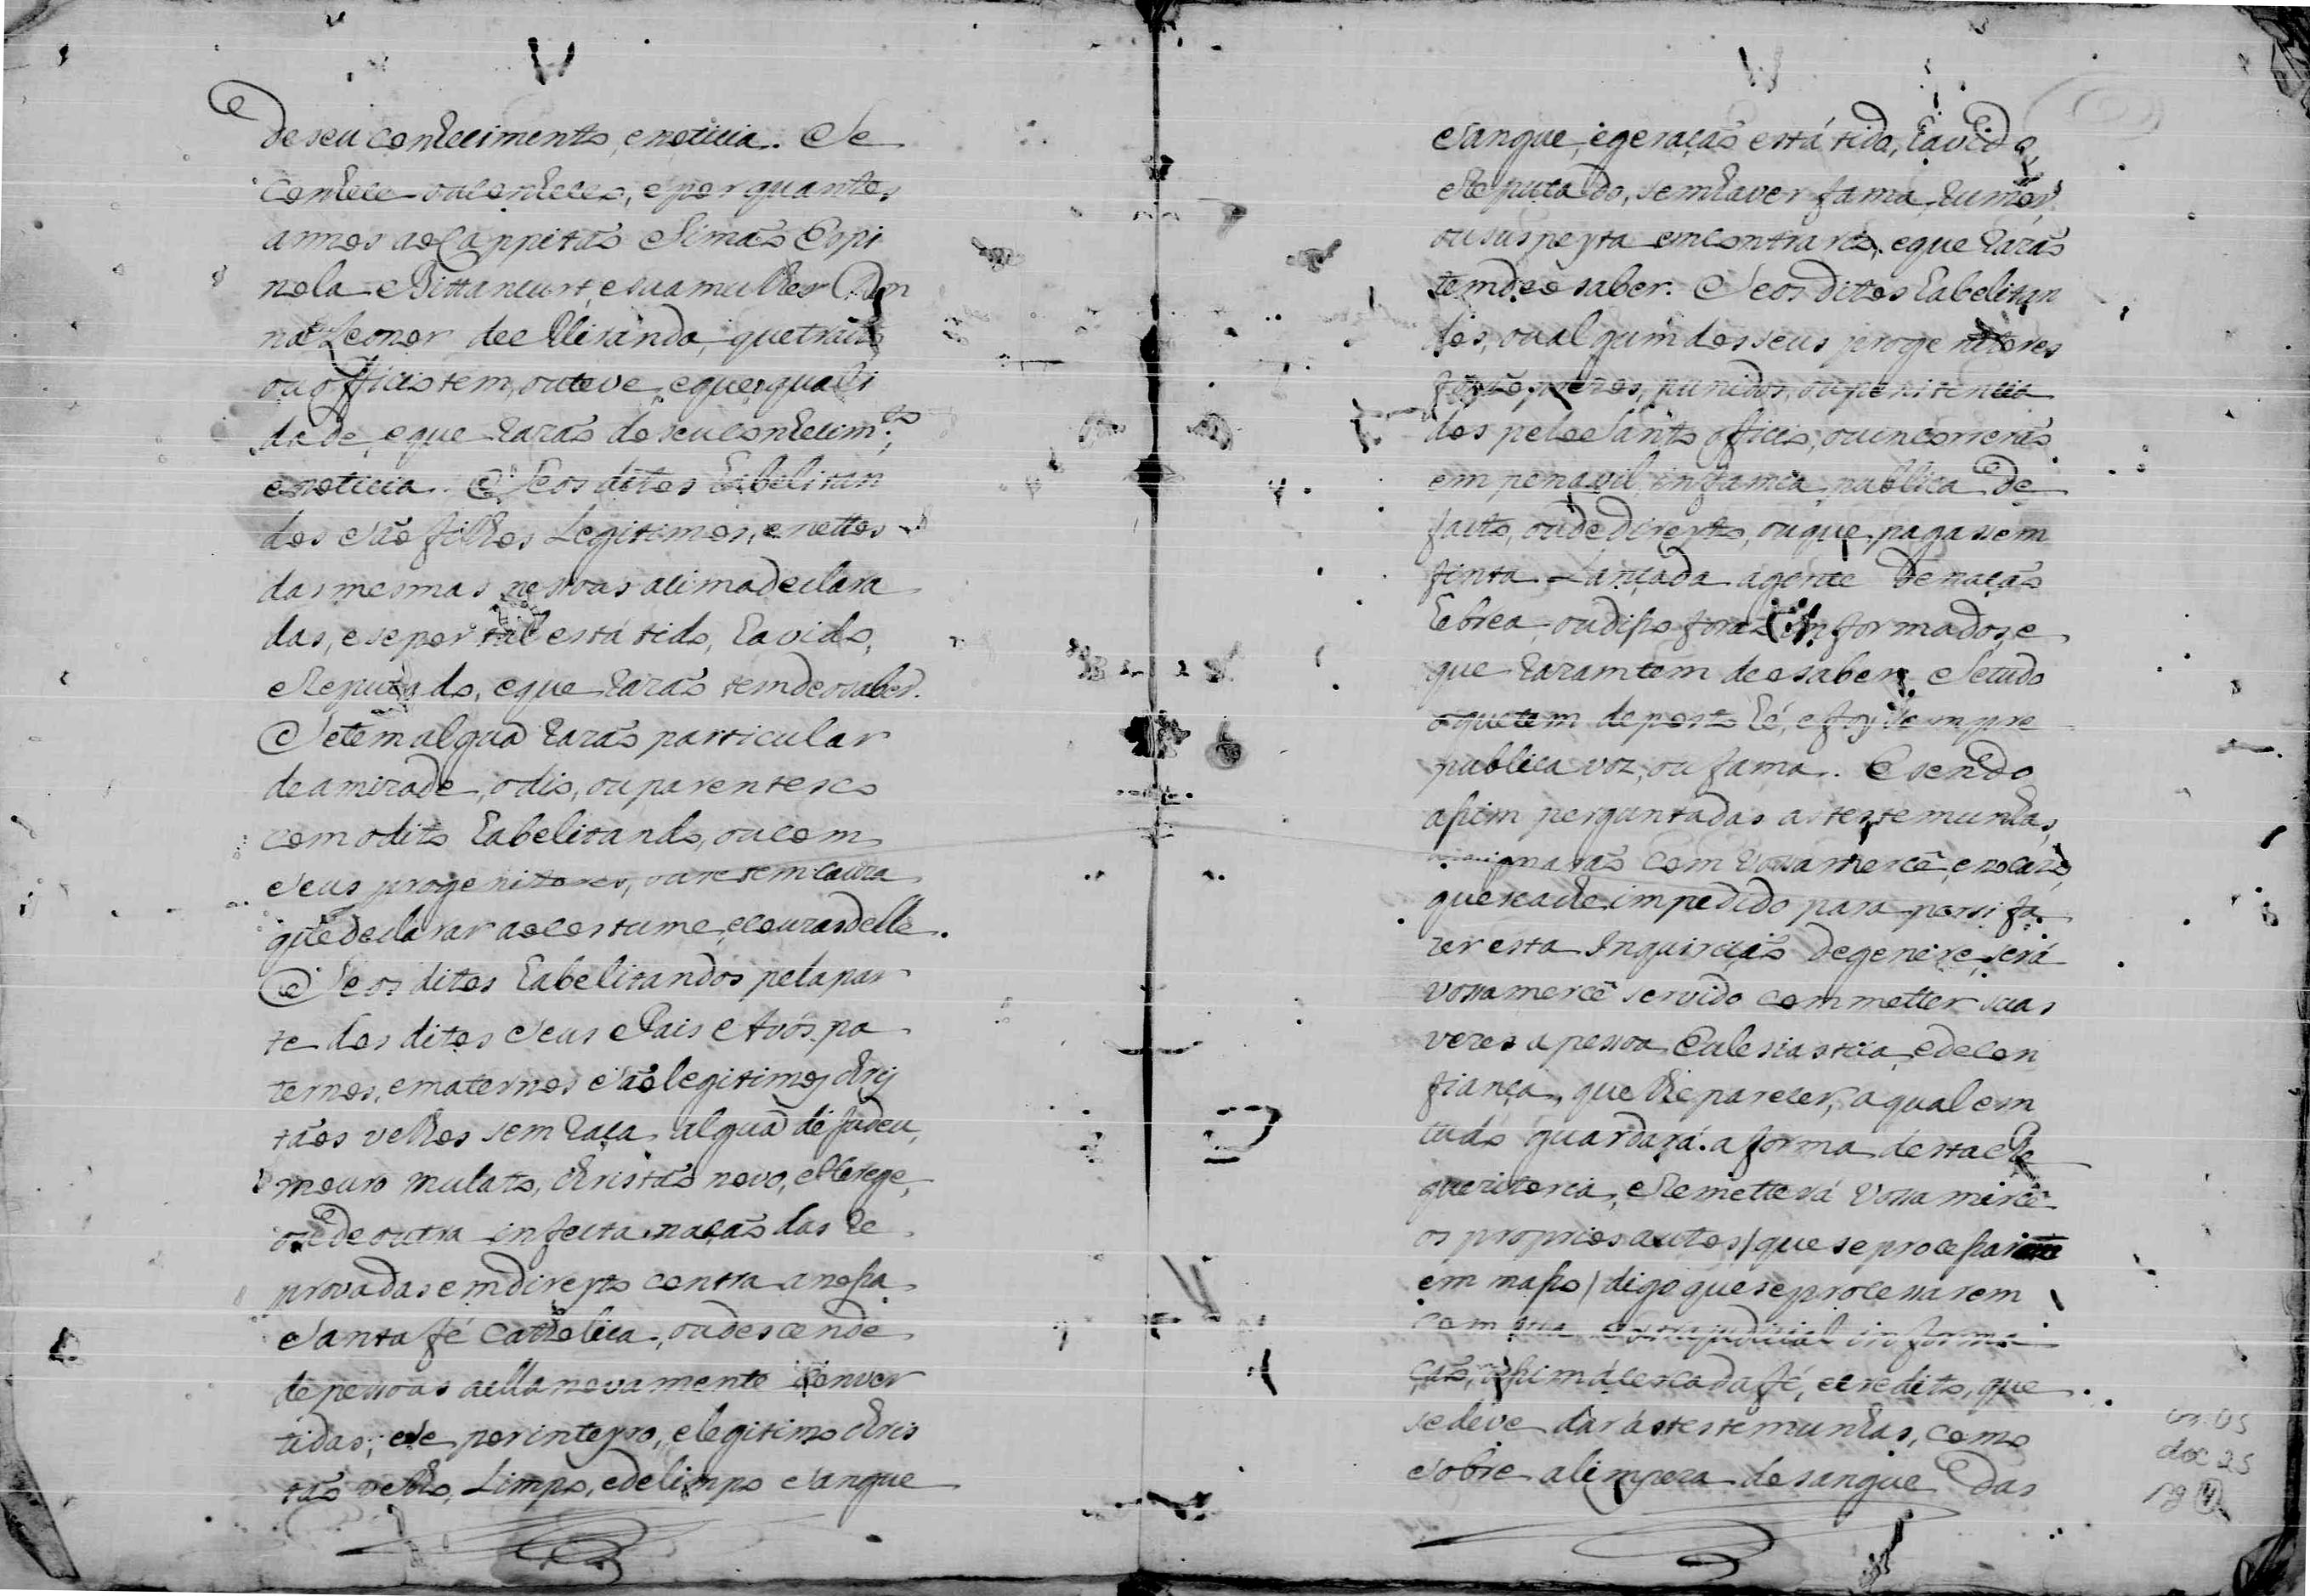 de seu conhecimento, e noticia. Se
conhece ou conheceo, e por quantos
annos ao Cappitaõ Simaõ Espi
nola Bittancurt, e sua mulher Don
na Leonor de Miranda, que tracto
ou officio tem, ou teve, e que quali
dade, e que razaõ do seu conhecim.to,
e noticia. Se os ditos habilitan
dos saõ filhos Legitimos, e nettos
das mesmas pessoas asima declara
das, e se por tal está tido, havido,
e Reputado, e que razaõ tem de o saber.
Se tem algũa razaõ particular
de amizade, odio, ou parentesco
com o dito habelitando, ou com
seus progenittores, ou se tem couza
que declarar ao costume, e couzas delle.
Se os ditos habelitandos pela par
te dos ditos seus Pais e Avós pa
ternos, e maternos saõ legitimos chris
taõs velhos sem raça algũa de Judeu,
mouro mulato, christaõ novo, Herege,
ou de outra infecta naçaõ das re
provadas em direyto contra a nossa
Santa fé catholica, ou descende
de pessoas a ella novamente conver
tidas; e se por inteyro, e legitimo chris
taõ velho, Limpo, e de limpo sangue
sangue, e geraçaõ está tido, havido,
e Reputado, sem haver fama, rumor,
ou suspeyta em contrario, e que razaõ
tem de o saber. Se os ditos habelitan
dos, ou algum dos seus progenittores
foraõ prezos, punidos, ou penitencia
dos pelo Santo officio, ou incorreraõ
em pena vil, infamia publica de
facto, ou de direyto, ou que pagassem
finta Lançada a gente de naçaõ
hebrea, ou disso foraõ informados, e
que razam tem de o saber. Se tudo
o que tem deposto hé, e foy sempre
publica voz, ou fama. E sendo
assim perguntadas as testemunhas,
assignaraõ com vossa mercê, e no cazo,
que seache impedido para por si fa
zer esta Inquiriçaõ de genere, será
vossa mercê servido commetter suas
vezes a pessoa Eclesiastica, e de con
fiança, que lhe parecer, a qual em
tudo guardará a forma desta Re
quizitoria, e Remetterá vossa mercê
os proprios autos/ que se processarem
em masso/ digo que se processarem
com sua extrajudicial informa
çaõ, assim ácerca da fé, e credito, que
se deve dar ás testemunhas, como
sobre a limpeza de sangue das
cx. 05
doc 25
pg 4